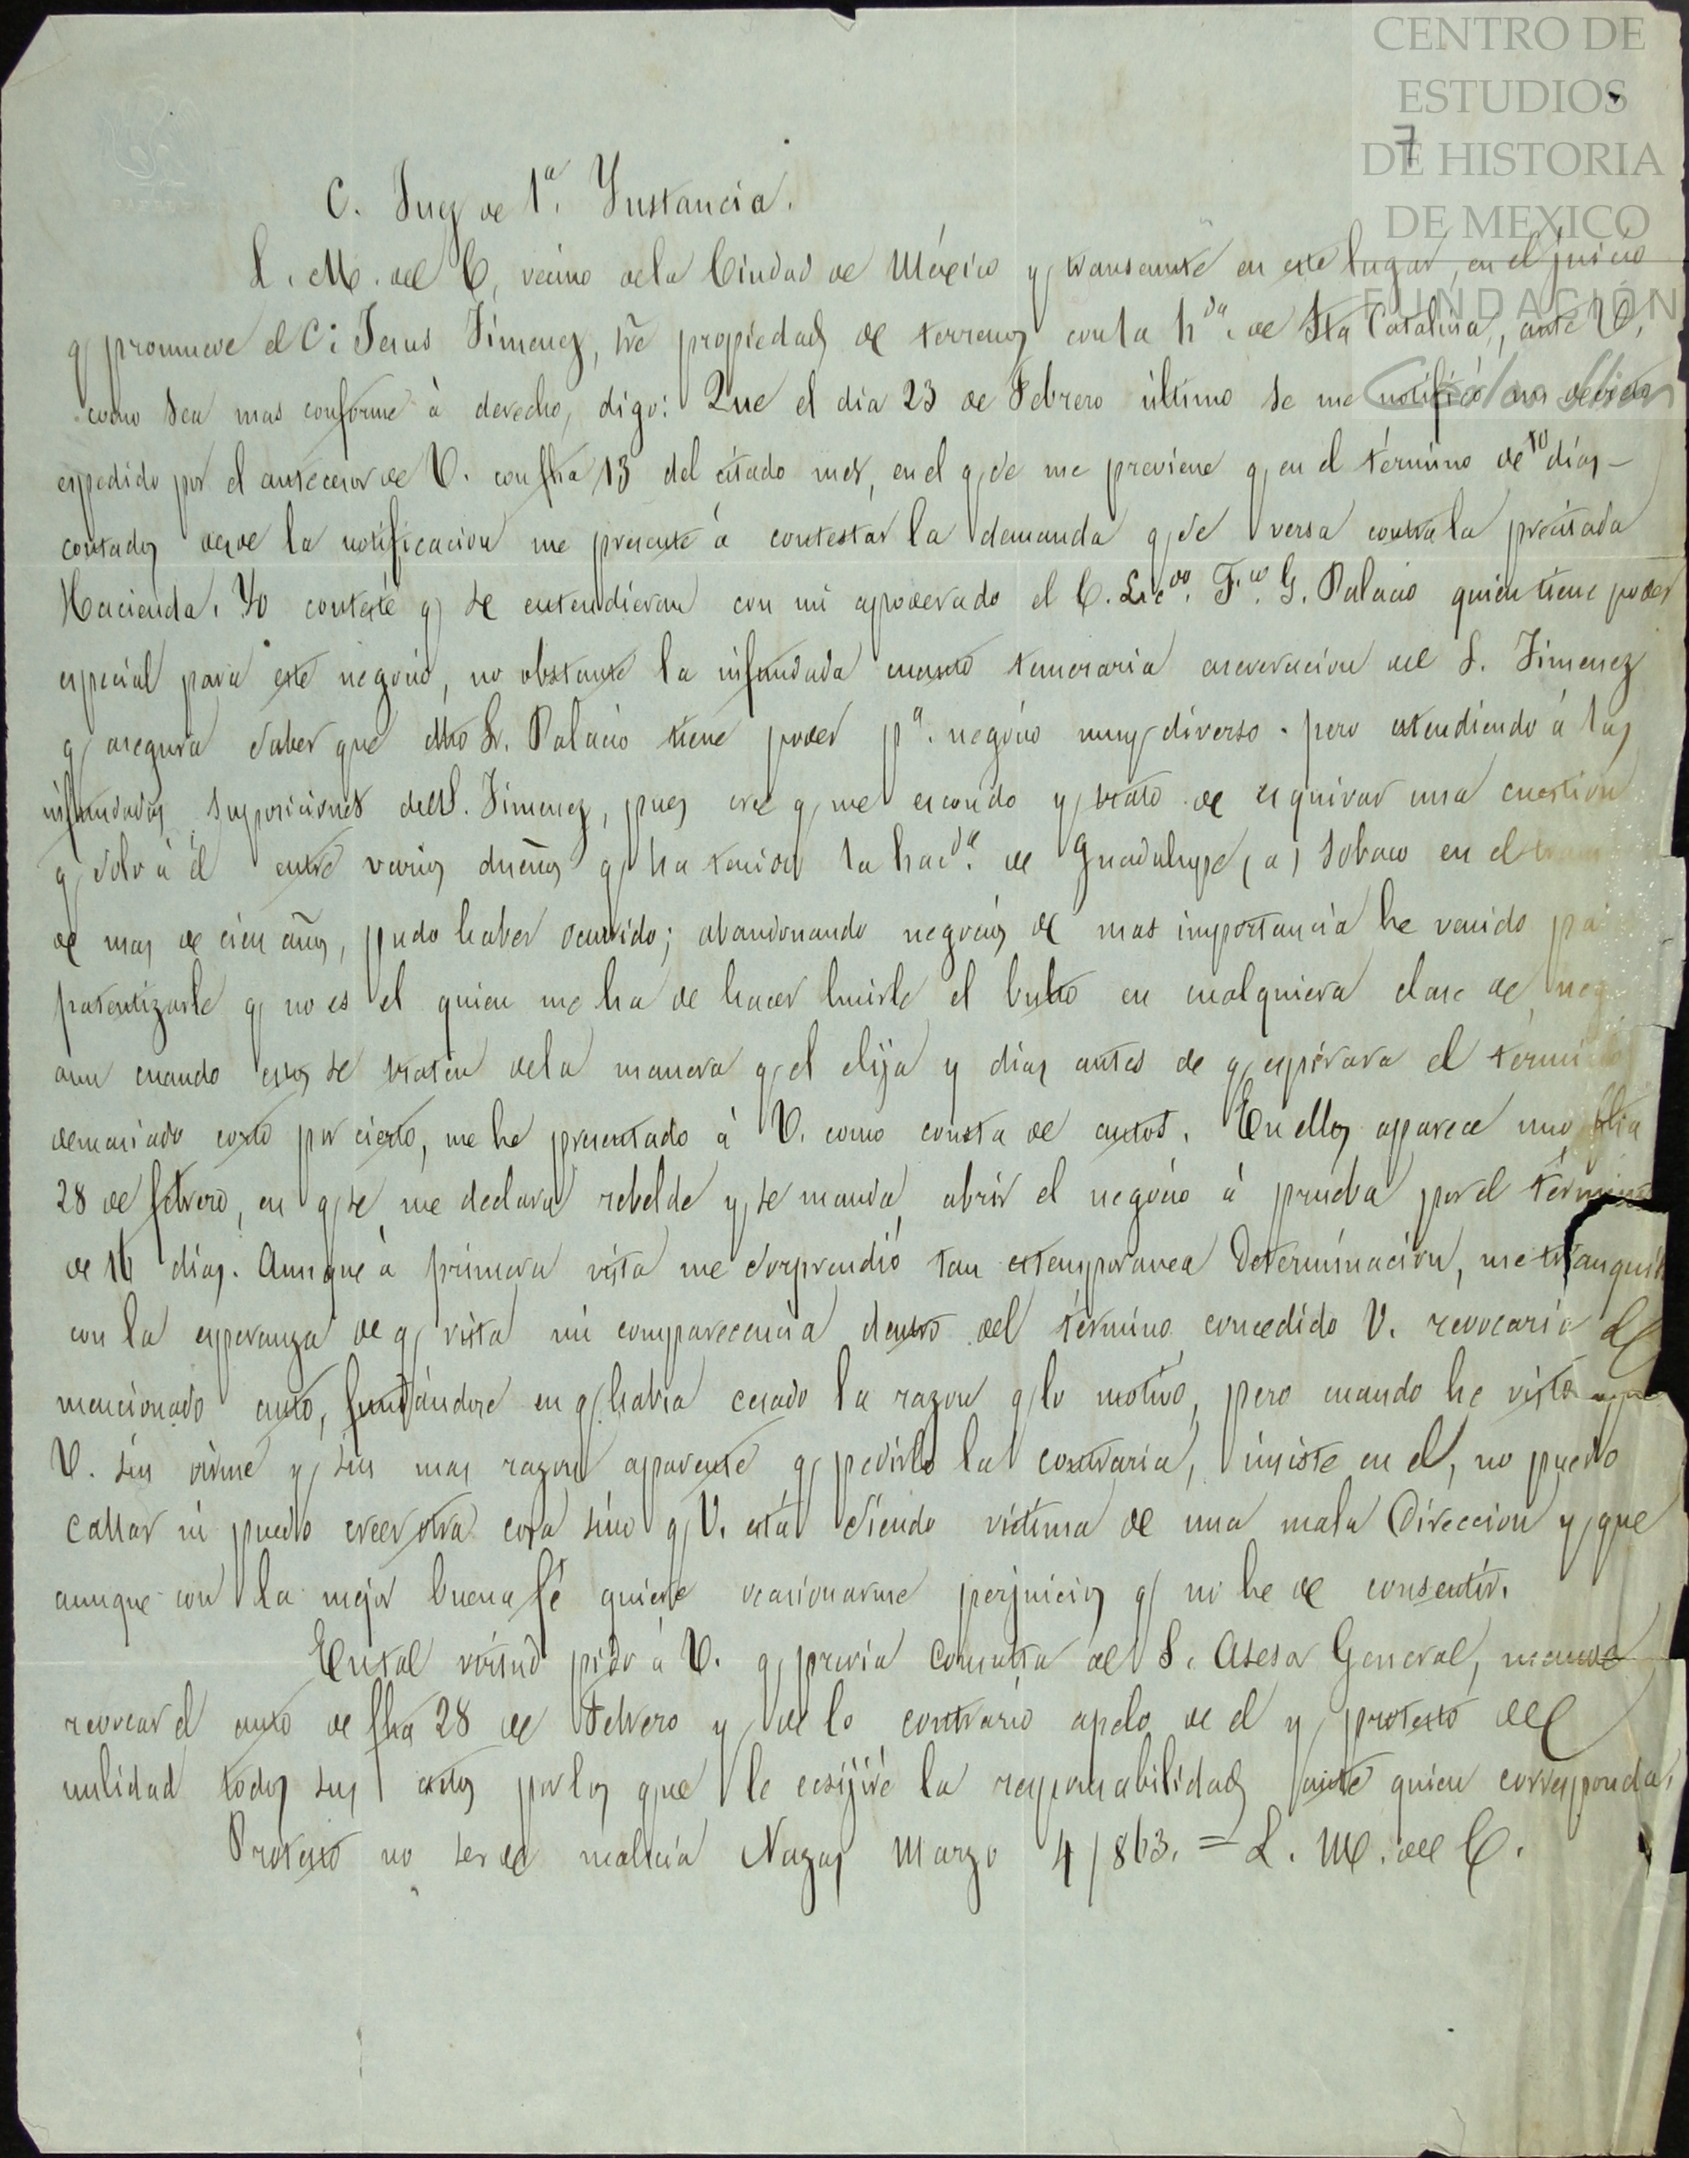 CENTRO DE
ESTUDIOS
DE HISTORIA
DE MEXICO
FUNDACIÓN
Carlos Slim
7
C. Juez de 1ª. Instancia.
L. M. del C, vecino dela Ciudad de México y transeunte en este lugar, en el juicio
q promueve el C: Jesus Jimenez, sre propiedad de terrenos con la hda. de Sta Catalina, ante V.
como sea mas conforme á derecho, digo: Que el dia 23 de Febrero último se me notificó un decreto
espedido por el antecesor de V. con fha 13 del citado mes, en el q se me previene q en el término de 10 dias
contados desde la notificacion me presente á contestar la demanda q se versa contra la precitada
Hacienda. Yo contesté q se entendieran con mi apoderado el C. Licdo. F.co G. Palacio quien tiene poder
especial para este negocio, no obstante la infundada cuanto temeraria aseveracion del S. Jimenez
q asegura saber que dho Sr. Palacio tiene poder pª. negocio muy diverso. pero atendiendo á las
infundadas suposiciones del S. Jimenez, pues cree q me escondo y trato de esquivar una cuestion
q solo á él entre varios dueños q ha tenido la hacda. de Guadalupe, (a) Sobaco en el
de mas de cien años, pudo haber ocurrido; abandonando negocios de mas importancia he venido pa
patentizarle q no es el quien me ha de hacer huirle el bulto en cualquiera clase de neg
aun cuando estos se traten dela manera q el elija y dias antes de q espirara el término
demasiado corto por cierto, me he presentado á V. como consta de autos. En ellos aparece uno fha
28 de febrero, en q se me declara rebelde y se manda abrir el negocio á prueba por el término
de 16 dias. Aunque á primera vista me sorprendió tan estemporanea determinación, me tranquili
con la esperanza de q vista mi comparecencia dentro del término concedido V. revocaria el
mencionado auto, fundándose en q habia cesado la razon q lo motivo, pero cuando he visto que
V. sin oirme y sin mas razon aparente q pedirlo la contraria, insiste en el, no puedo
callar ni puedo creer otra cosa sino q V. está siendo victima de una mala direccion y que
aunque con la mejor buena fé quiere ocasionarme perjuicios q no he de consentir.
En tal virtud pido á V. q previa consulta del S. Asesor General, mande
revocar el auto de fha 28 de Febrero y de lo contrario apelo de el y protesto de
nulidad todos sus actos por los que le ecsijiré la responsabilidad ante quien corresponda.
Protesto no ser de malicia Nazas Marzo 4/863. = L. M. del C.